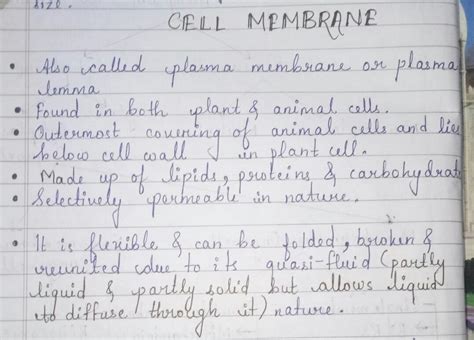 size.
CELL MEMBRANE
• Also called plasma membrane or plasma
lemma
• Found in both plant & animal cells.
• Outermost covering of animal cells and lies
below cell wall in plant cell.
• Made up of lipids, proteins & carbohydrate
• Selectively permeable in nature.
• It is flexible & can be folded, broken &
reunited due to its quasi-fluid (partly
liquid & partly solid but allows liquid
to diffuse through it) nature.